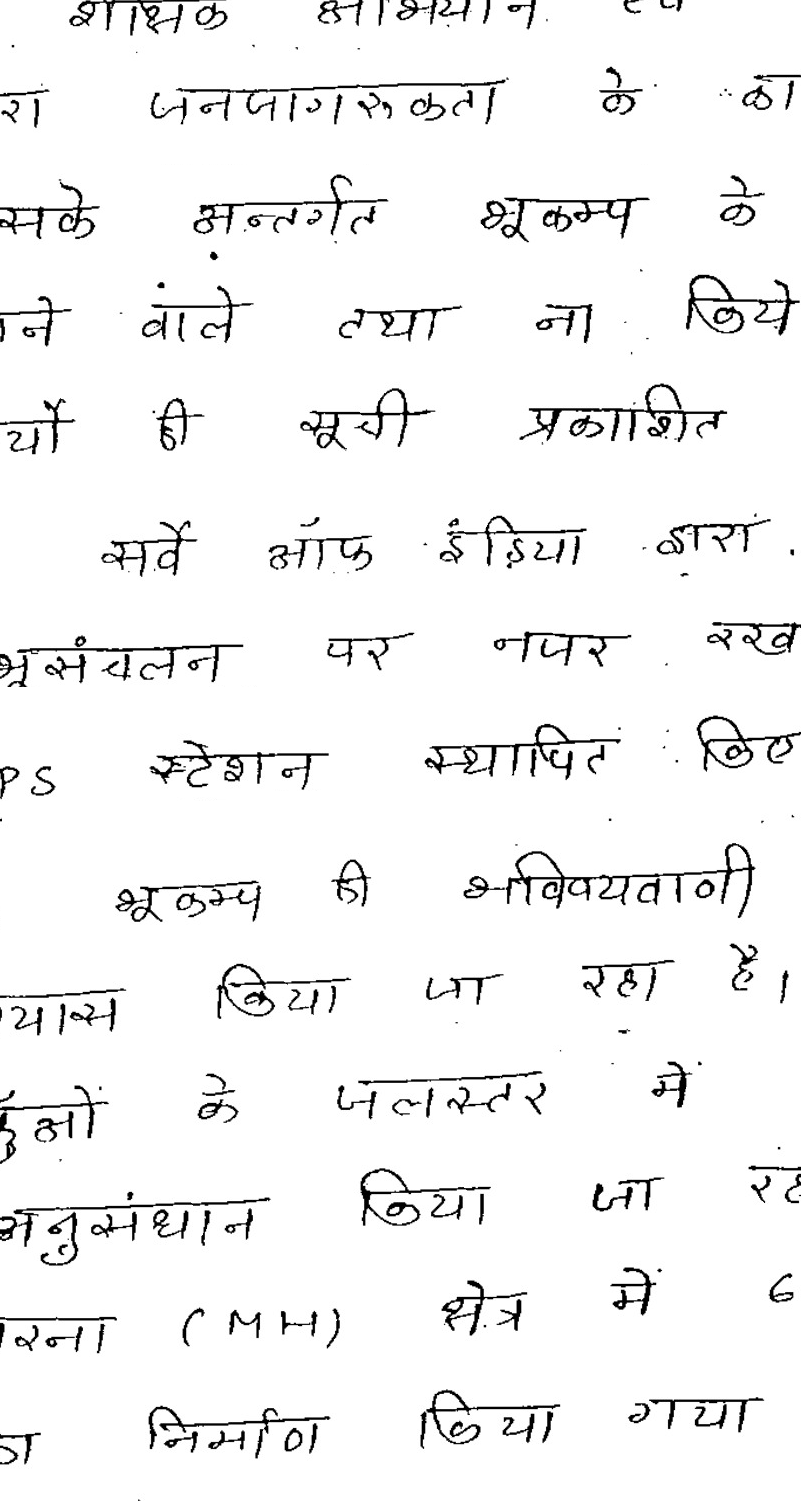 शैक्षिक अभियान एवं
रा जनजागरूकता के का
सके अन्तर्गत भूकम्प के
ाने वाले तथा ना किये
र्यो की सूची प्रकाशित
सर्वे ऑफ इंडिया द्वारा
भूसंचलन पर नजर रख
PS स्टेशन स्थापित किए
भूकम्प की भविष्यवाणी
यास किया जा रहा है।
कुँओं के जलस्तर में
अनुसंधान किया जा रह
ारना (MH) क्षेत्र में 6
का निर्माण किया गया